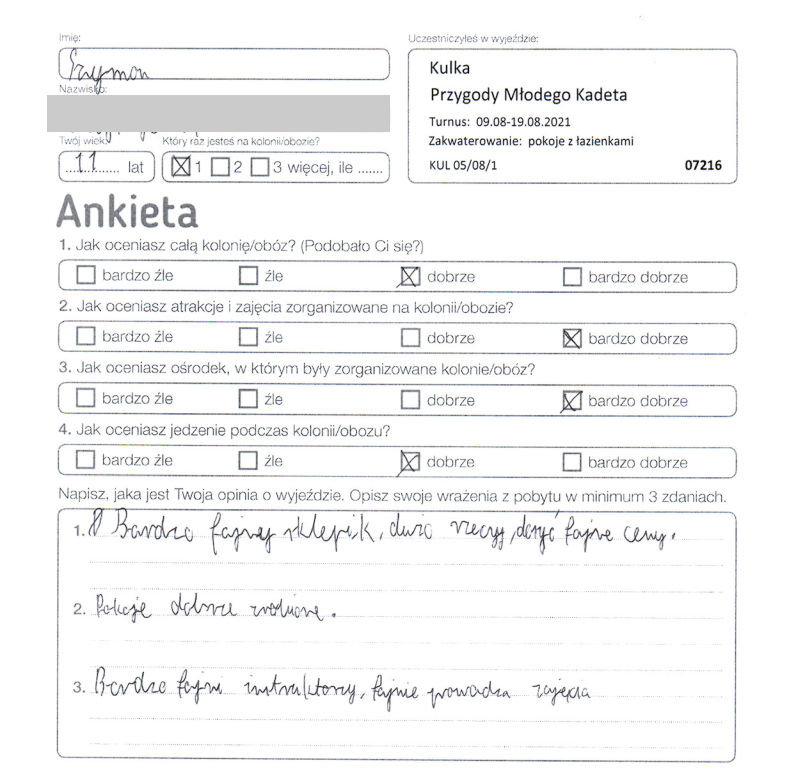 Imię:
Szymon
Nazwisko:
Twój wiek:
Który raz jesteś na kolonii/obozie?
11 lat
1 2 3 więcej, ile .......
Uczestniczyłeś w wyjeździe:
Kulka
Przygody Młodego Kadeta
Turnus: 09.08-19.08.2021
Zakwaterowanie: pokoje z łazienkami
KUL 05/08/1 07216
Ankieta
1. Jak oceniasz całą kolonię/obóz? (Podobało Ci się?)
bardzo źle źle dobrze bardzo dobrze
2. Jak oceniasz atrakcje i zajęcia zorganizowane na kolonii/obozie?
bardzo źle źle dobrze bardzo dobrze
3. Jak oceniasz ośrodek, w którym były zorganizowane kolonie/obóz?
bardzo źle źle dobrze bardzo dobrze
4. Jak oceniasz jedzenie podczas kolonii/obozu?
bardzo źle źle dobrze bardzo dobrze
Napisz, jaka jest Twoja opinia o wyjeździe. Opisz swoje wrażenia z pobytu w minimum 3 zdaniach.
1. Bardzo fajny sklepik, dużo rzeczy, dosyć fajne ceny.
2. Pokoje dobrze zrobione.
3. Bardzo fajni instruktorzy, fajnie prowadza zajęcia